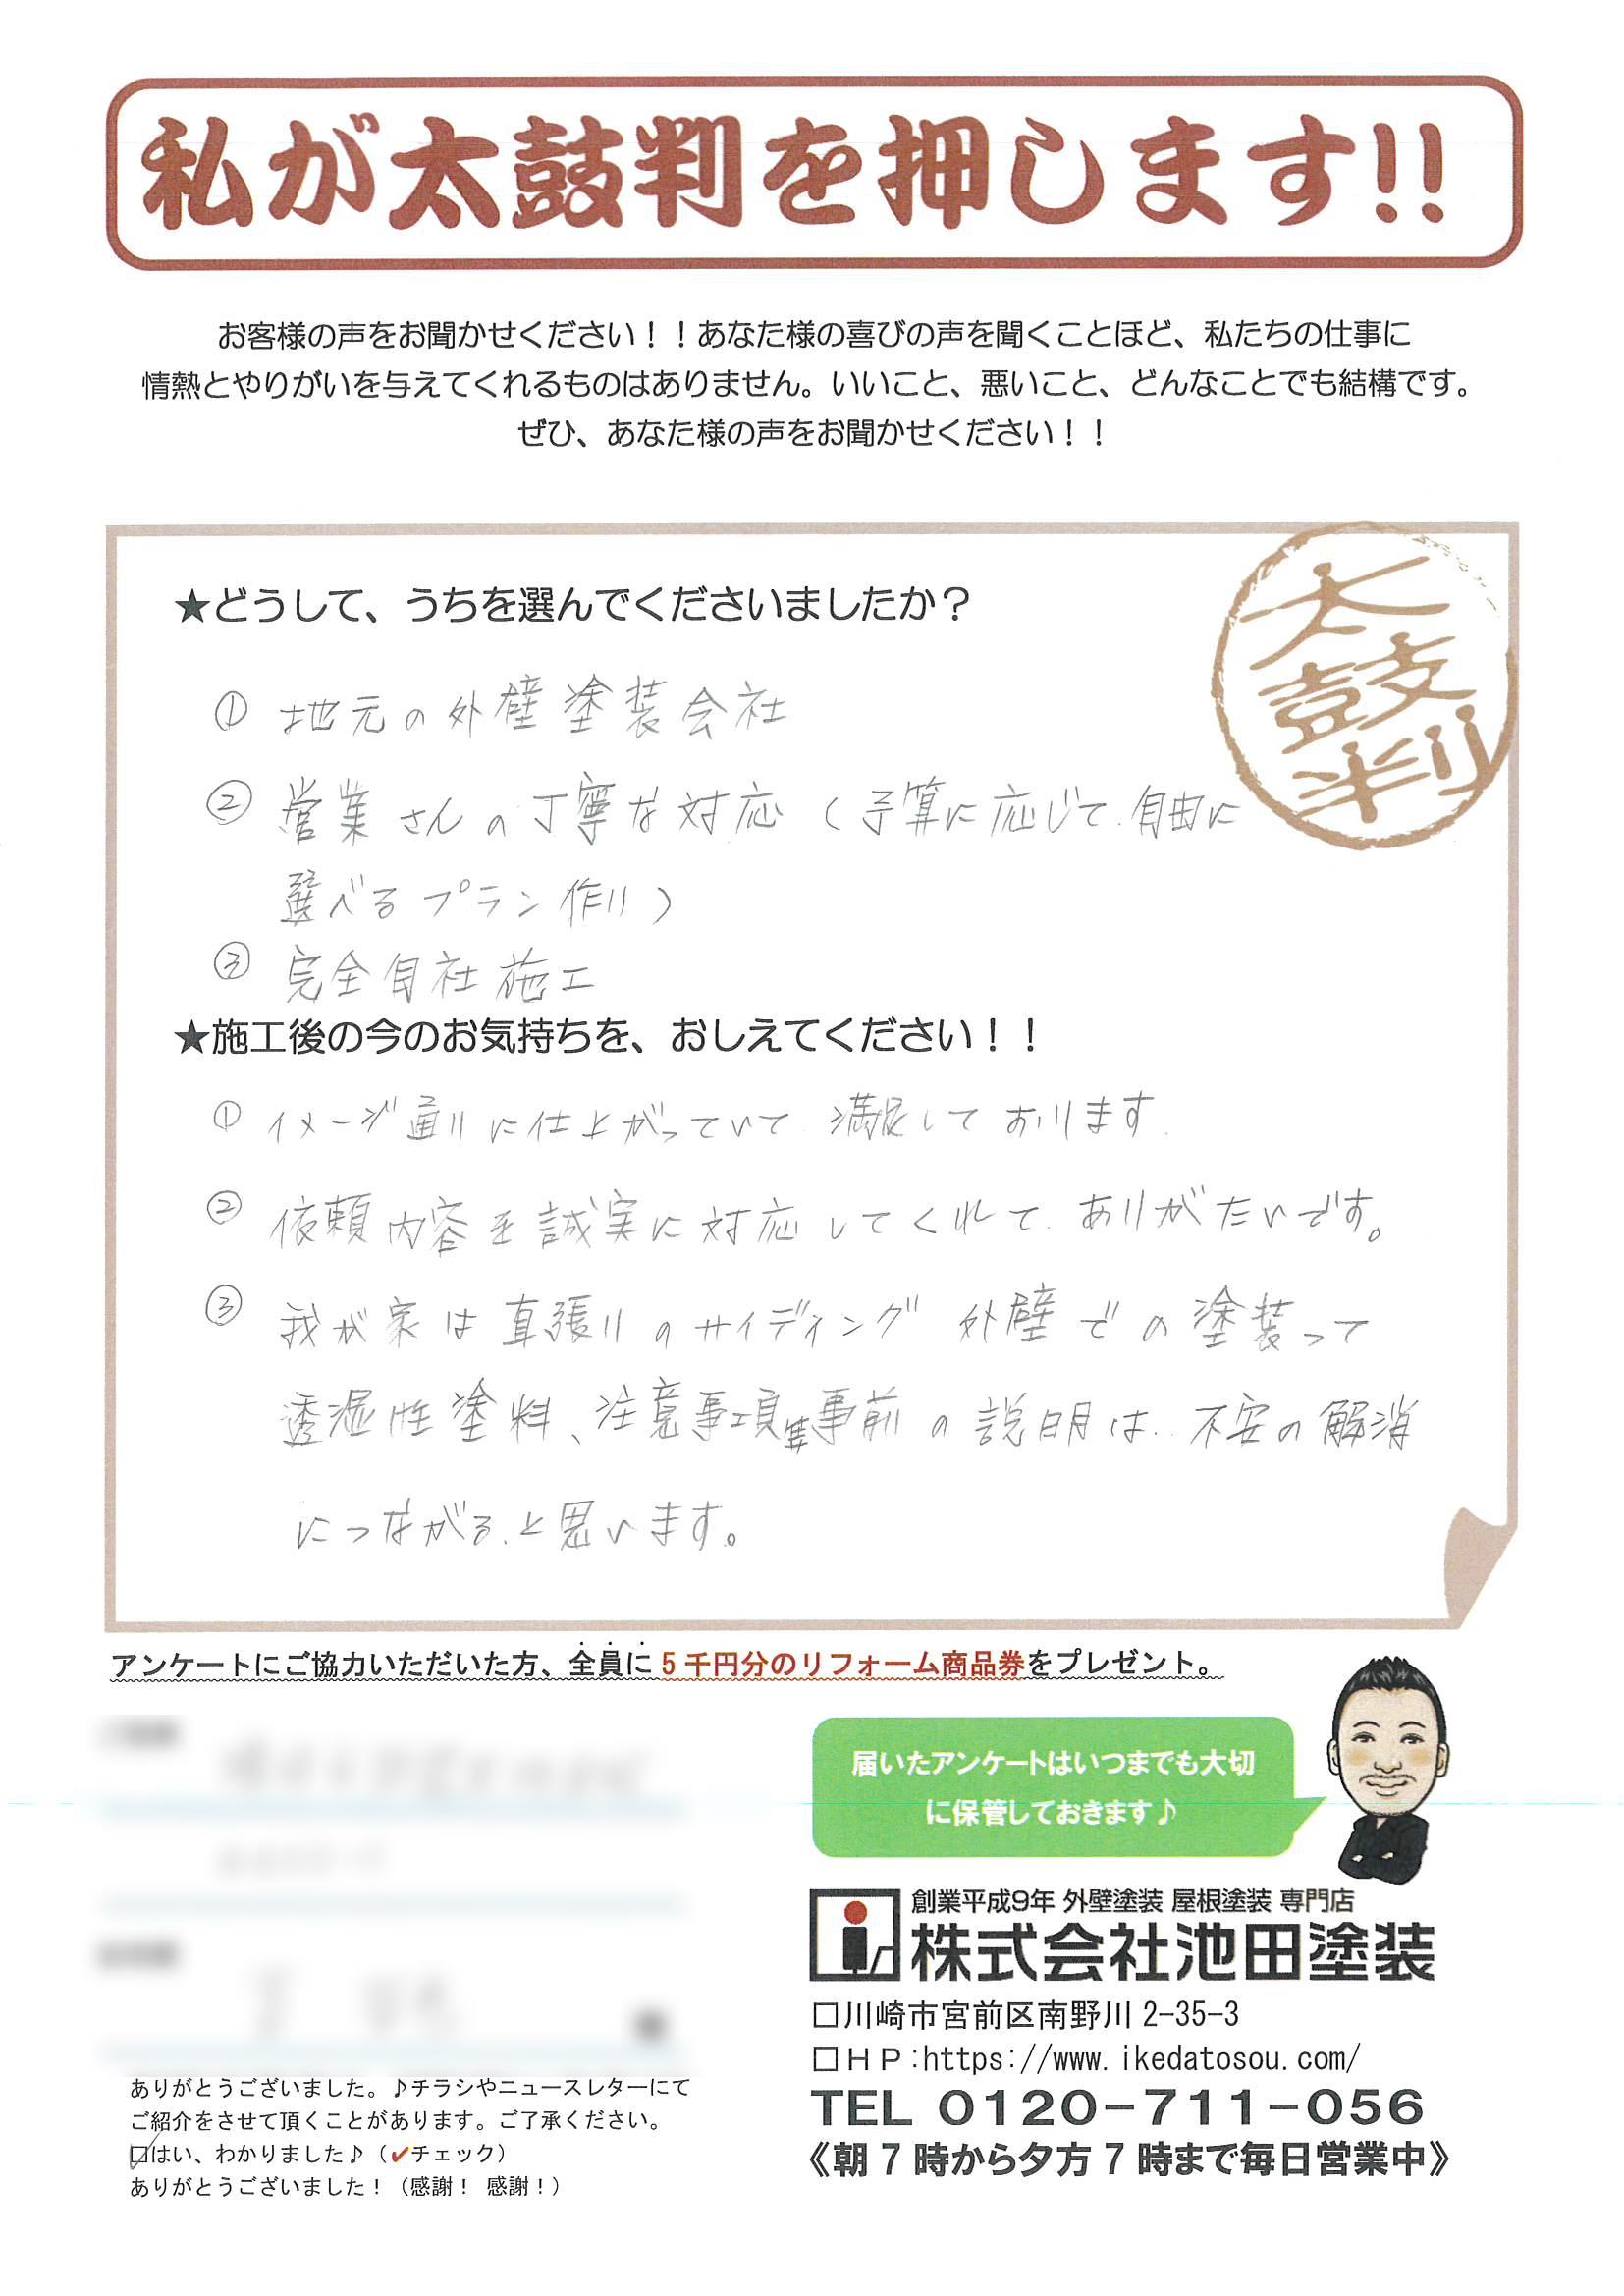 私が太鼓判を押します!!
お客様の声をお聞かせください！！あなた様の喜びの声を聞くことほど、私たちの仕事に
情熱とやりがいを与えてくれるものはありません。いいこと、悪いこと、どんなことでも結構です。
ぜひ、あなた様の声をお聞かせください！！
太鼓判
★どうして、うちを選んでくださいましたか？
① 地元の外壁塗装会社
② 営業さんの丁寧な対応（予算に応じて、自由に
選べるプラン作り）
③ 完全自社施工
★施工後の今のお気持ちを、おしえてください！！
① イメージ通りに仕上がっていて、満足しております.
② 依頼内容を誠実に対応してくれて、ありがたいです。
③ 我が家は直張りのサイディング外壁での塗装って
透湿性塗料、注意事項等事前の説明は、不安の解消
につながる、と思います。
アンケートにご協力いただいた方、全員に5千円分のリフォーム商品券をプレゼント。
届いたアンケートはいつまでも大切
に保管しておきます♪
創業平成9年 外壁塗装 屋根塗装 専門店
株式会社池田塗装
□川崎市宮前区南野川2-35-3
□HP:https://www.ikedatosou.com/
TEL 0120-711-056
《朝7時から夕方7時まで毎日営業中》
様
ありがとうございました。♪チラシやニュースレターにて
ご紹介をさせて頂くことがあります。ご了承ください。
☑はい、わかりました♪（✔チェック）
ありがとうございました！（感謝！ 感謝！）